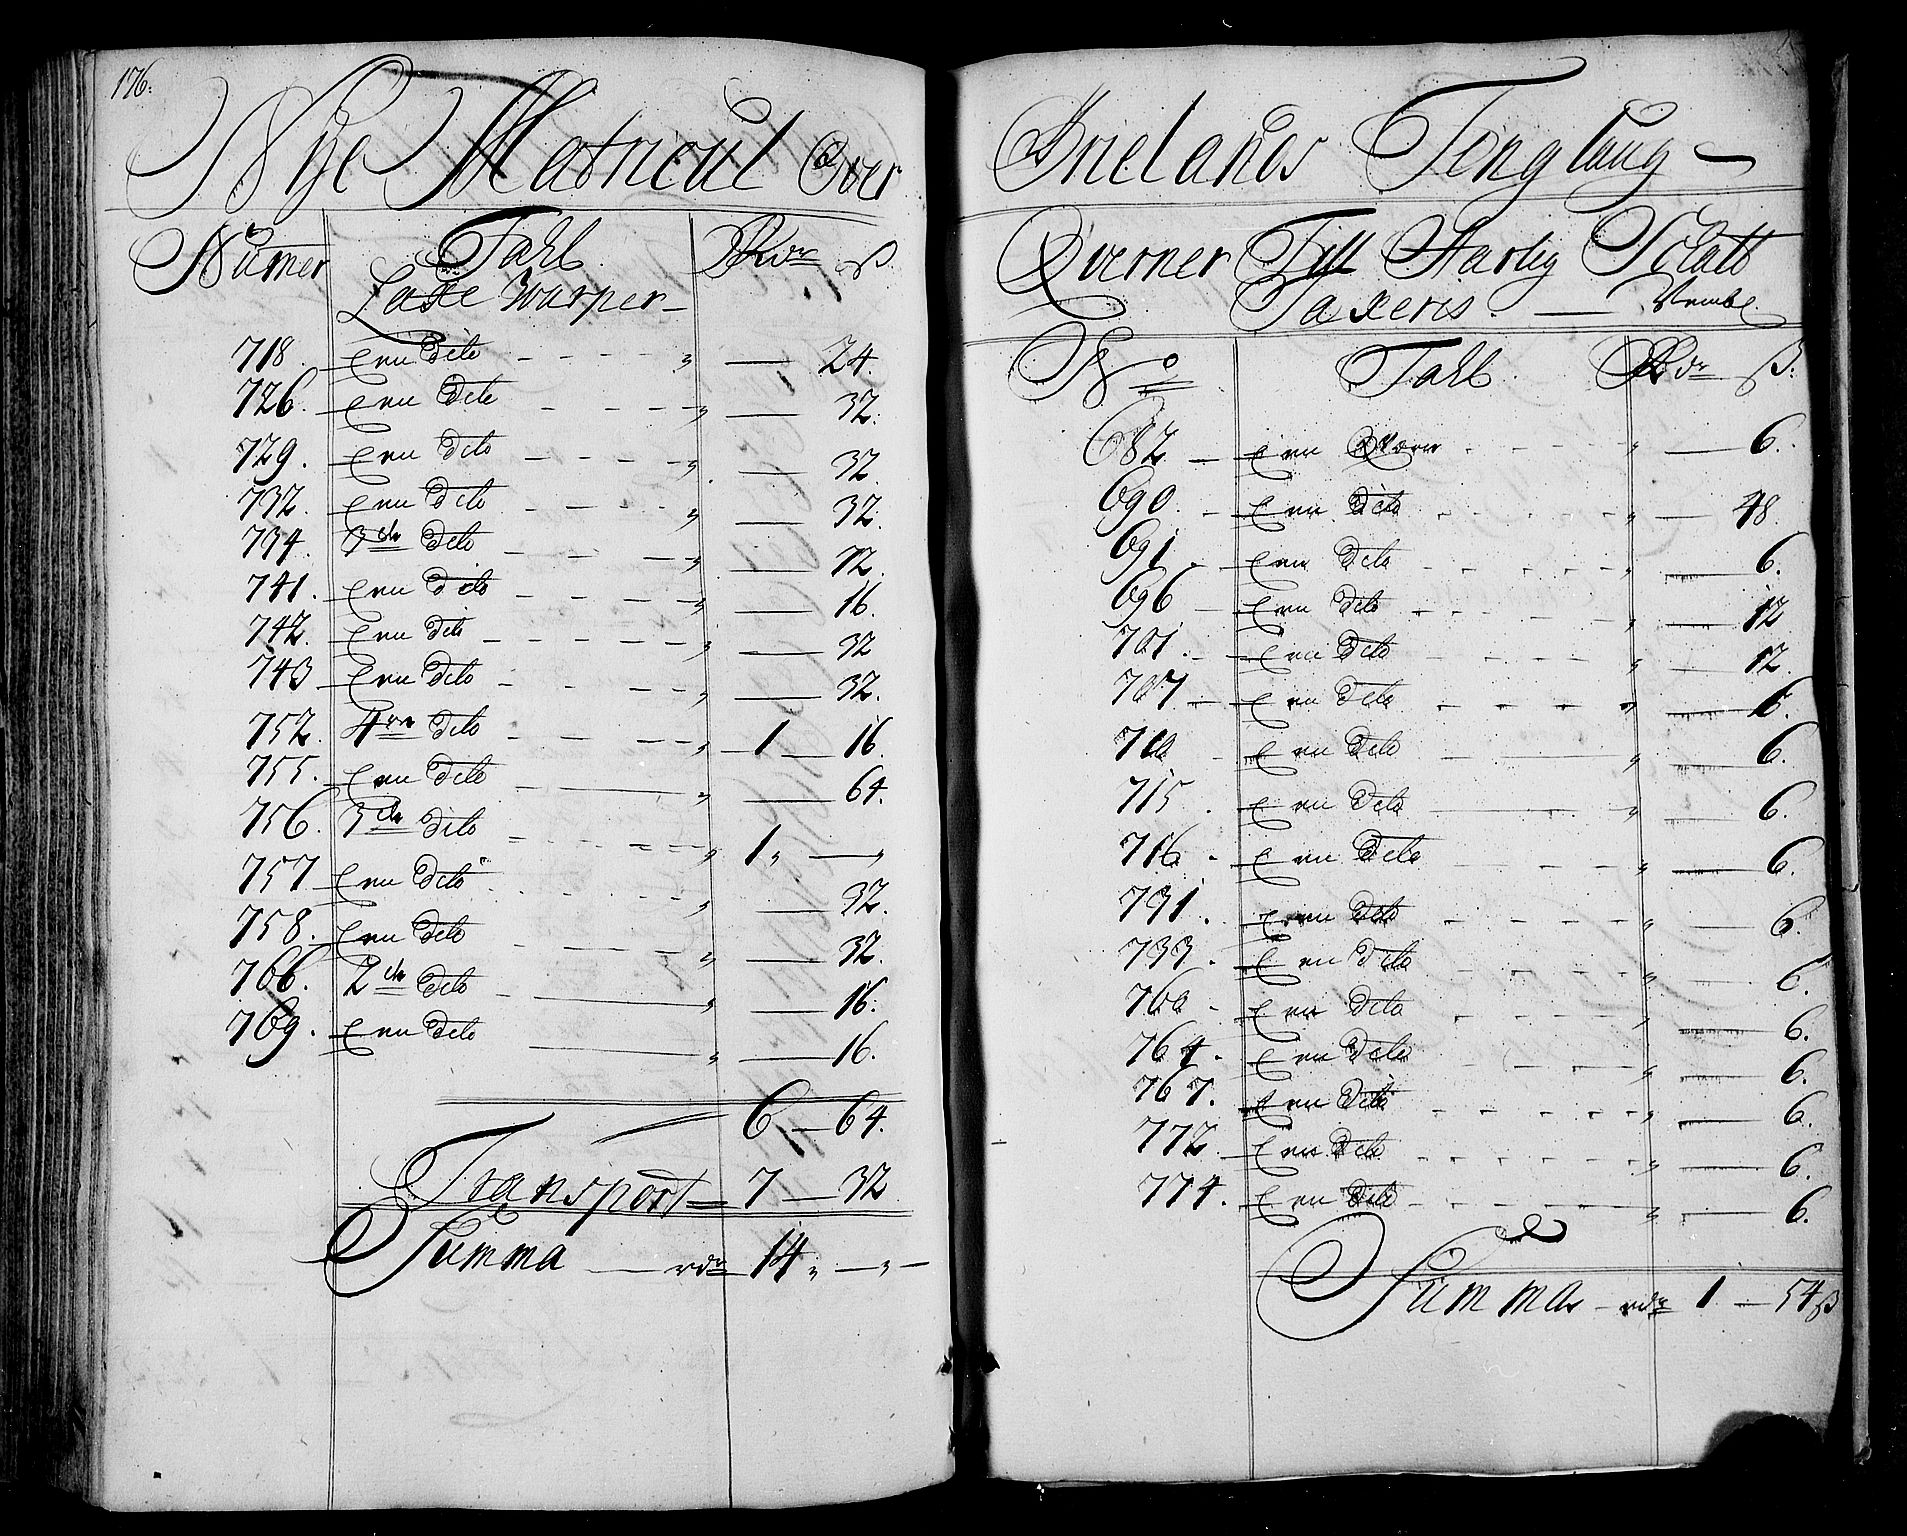 176.
Nÿe Matricul Over
Numer Tahl Rdr ß
Laxe Warper
718. Een Dito " 24.
726. Een Dito " 32.
729. Een Dito " 32.
732. Een Dito " 32.
734. 3de Dito " 12.
741. Een Dito " 16.
742. Een Dito " 32
743 Een Dito " 32.
752. 4re Dito " 1 16.
755. Een Dito " 64.
756. 3de Dito " 1 "
757 Een Dito " 32.
758. Een Dito " 32.
766. 2de Dito " 16.
769. Een Dito " 16.
6 64.
Transport 7 32
Summa rdr 14 " "
Nielands Tinglaug
Qverner Till Aarlig Schatt
Taxeris.
No Tahl Rdr ß.
682 Een Qværn " 6.
690. Een Dito " 48.
691. Een Dito " 6.
696 Een Dito " 12
701. Een Dito " 12.
707 Een Dito " 6.
Een Dito " 6.
715. Een Dito " 6.
716. Een Dito " 6.
731. Een Dito " 6.
733. Een Dito " 6.
760 Een Dito " 6.
764. Een Dito " 6.
767. Een Dito " 6.
772 Een Dito " 6.
774. Een Dito " 6.
Summa rdr 1 54 ß